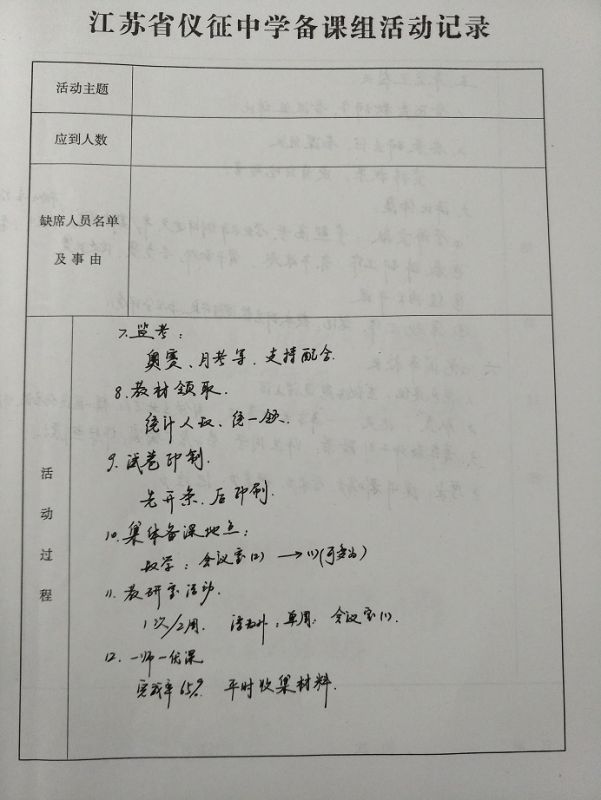 江苏省仪征中学备课组活动记录
活动主题
应到人数
缺席人员名单
及事由
活动过程
7.监考:
奥赛、月考等、支持配合.
8.教材领取.
统计人数、统一领.
9.试卷印制.
先开条、后印刷.
10.集体备课地点:
数学:会议室(2) →(1)
11.教研室活动.
1次/2周. 单周: 会议室(1).
12.一师一优课
完成率65% 平时收集材料.